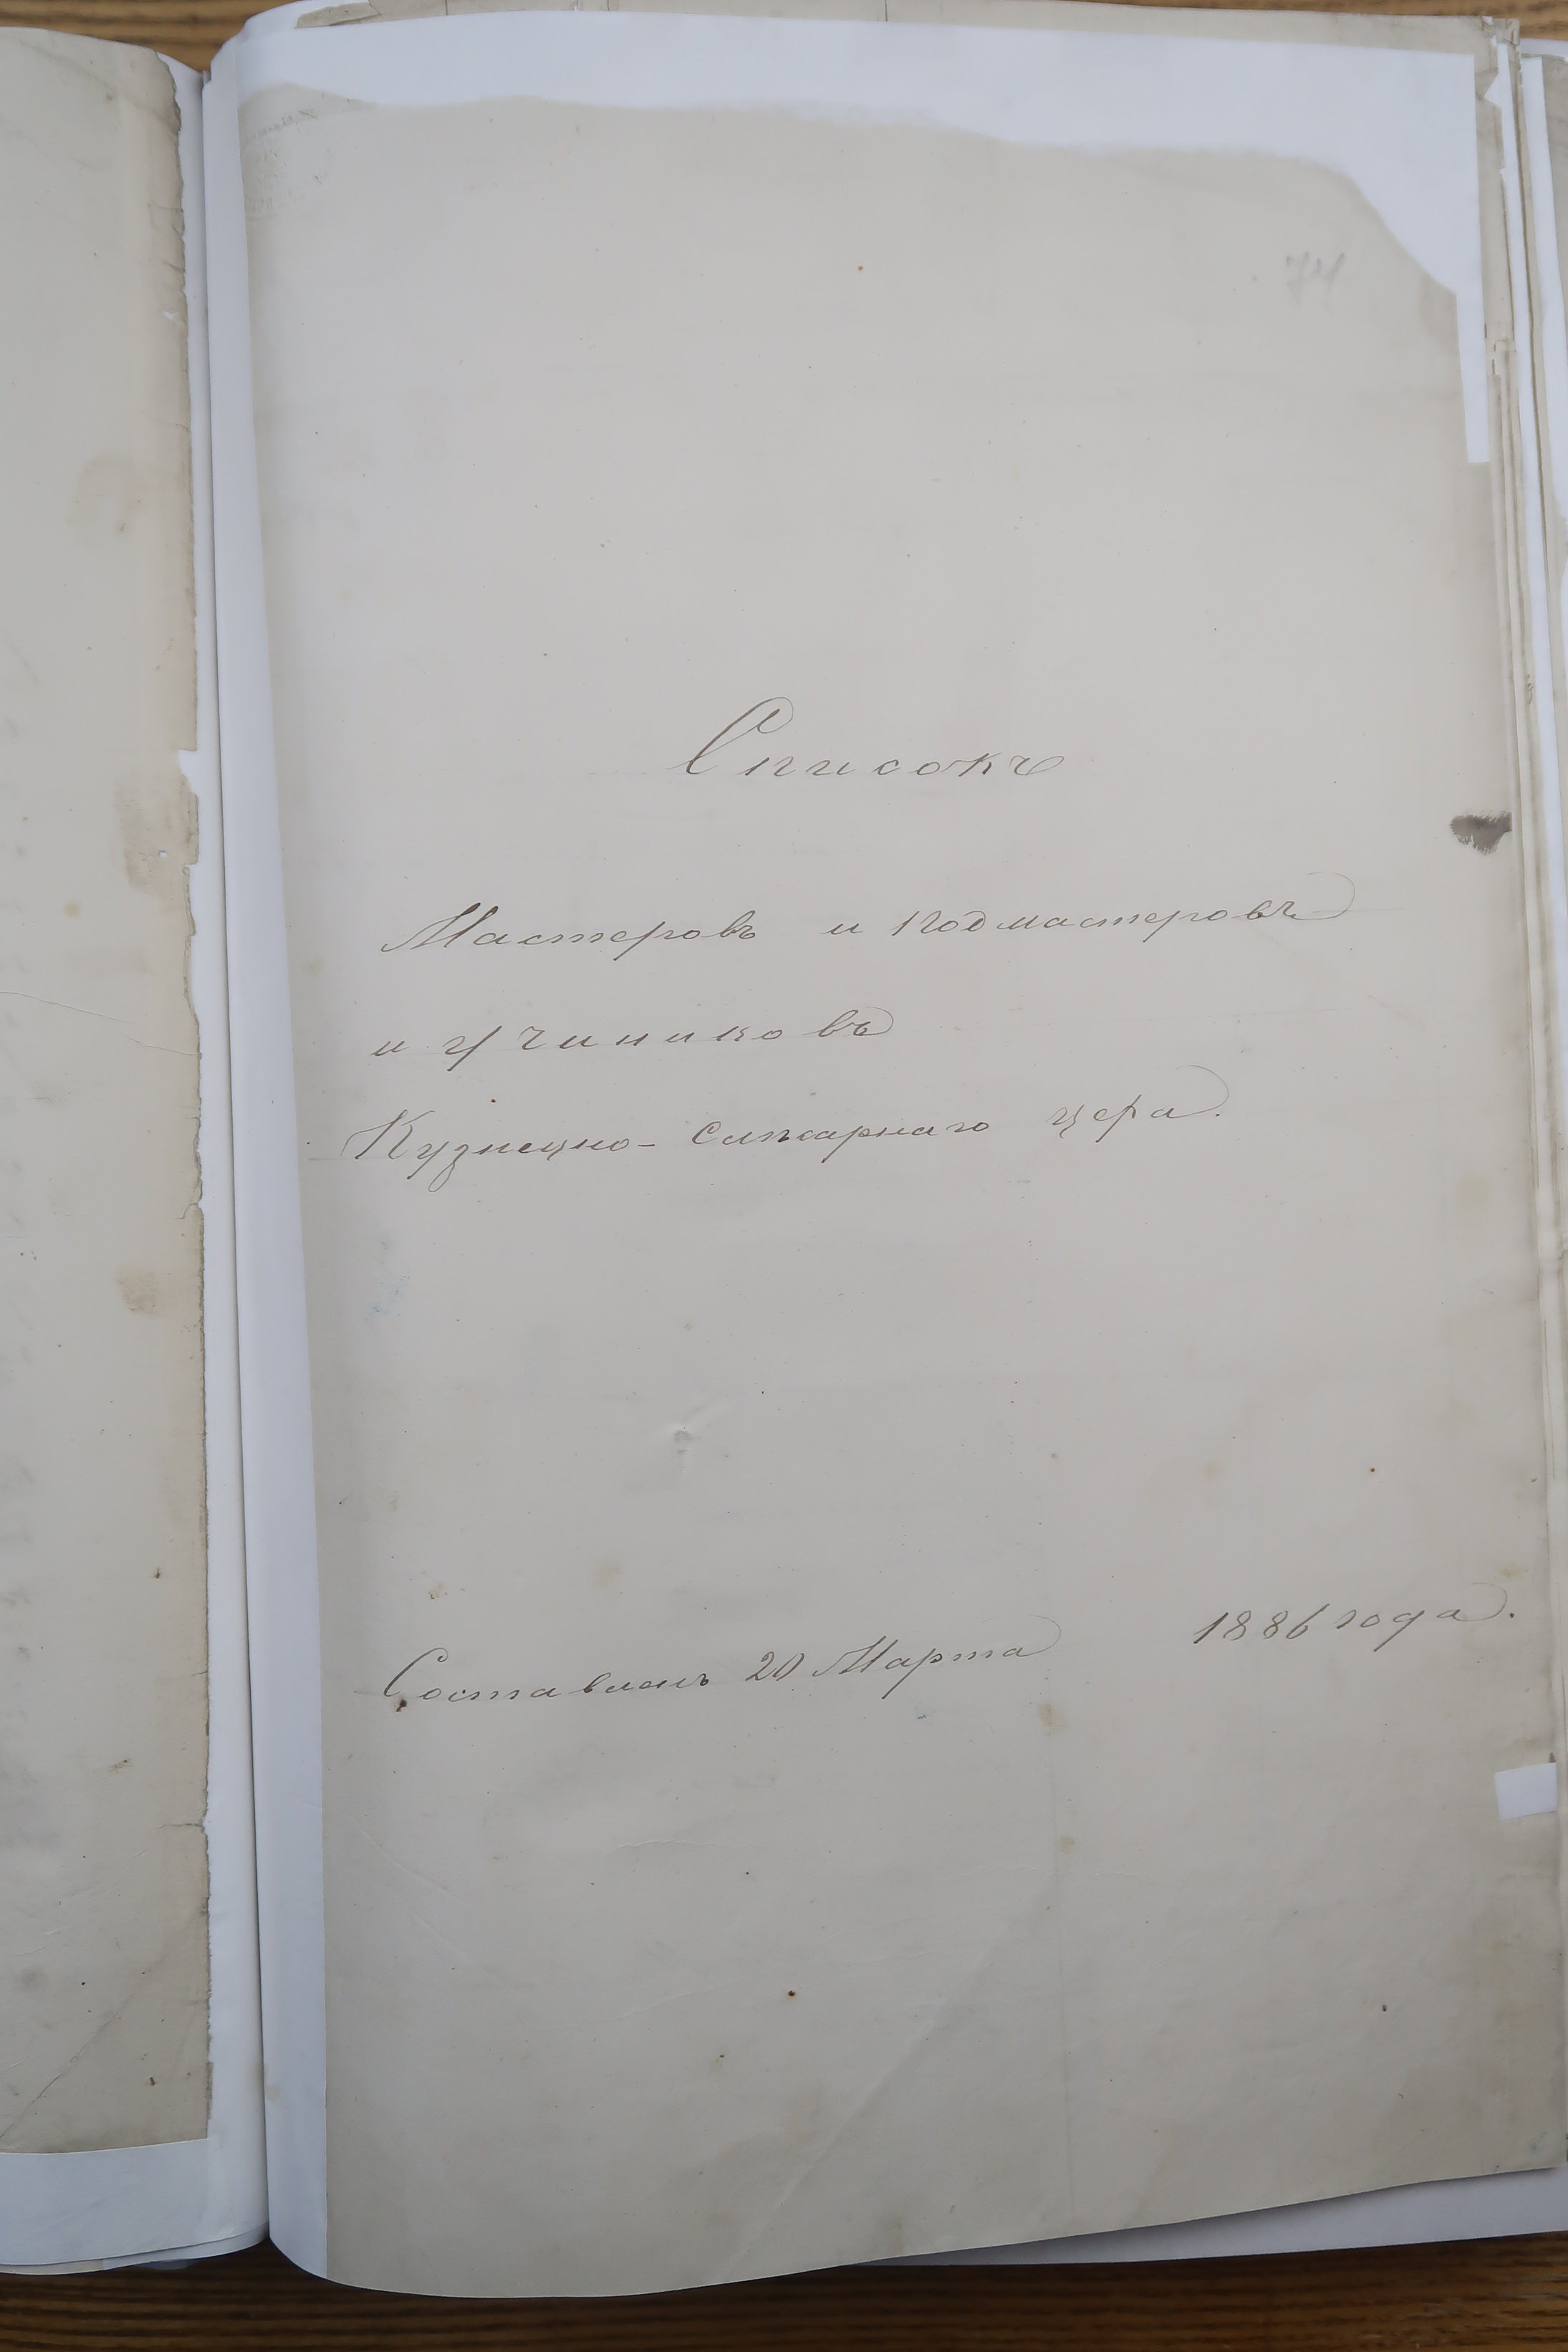 74
Списокъ
Мастеровъ и подмастеровъ
и учиниковъ
Кузнецно - Слесарнаго цеха.
Составленъ 20 Марта 1886 года.